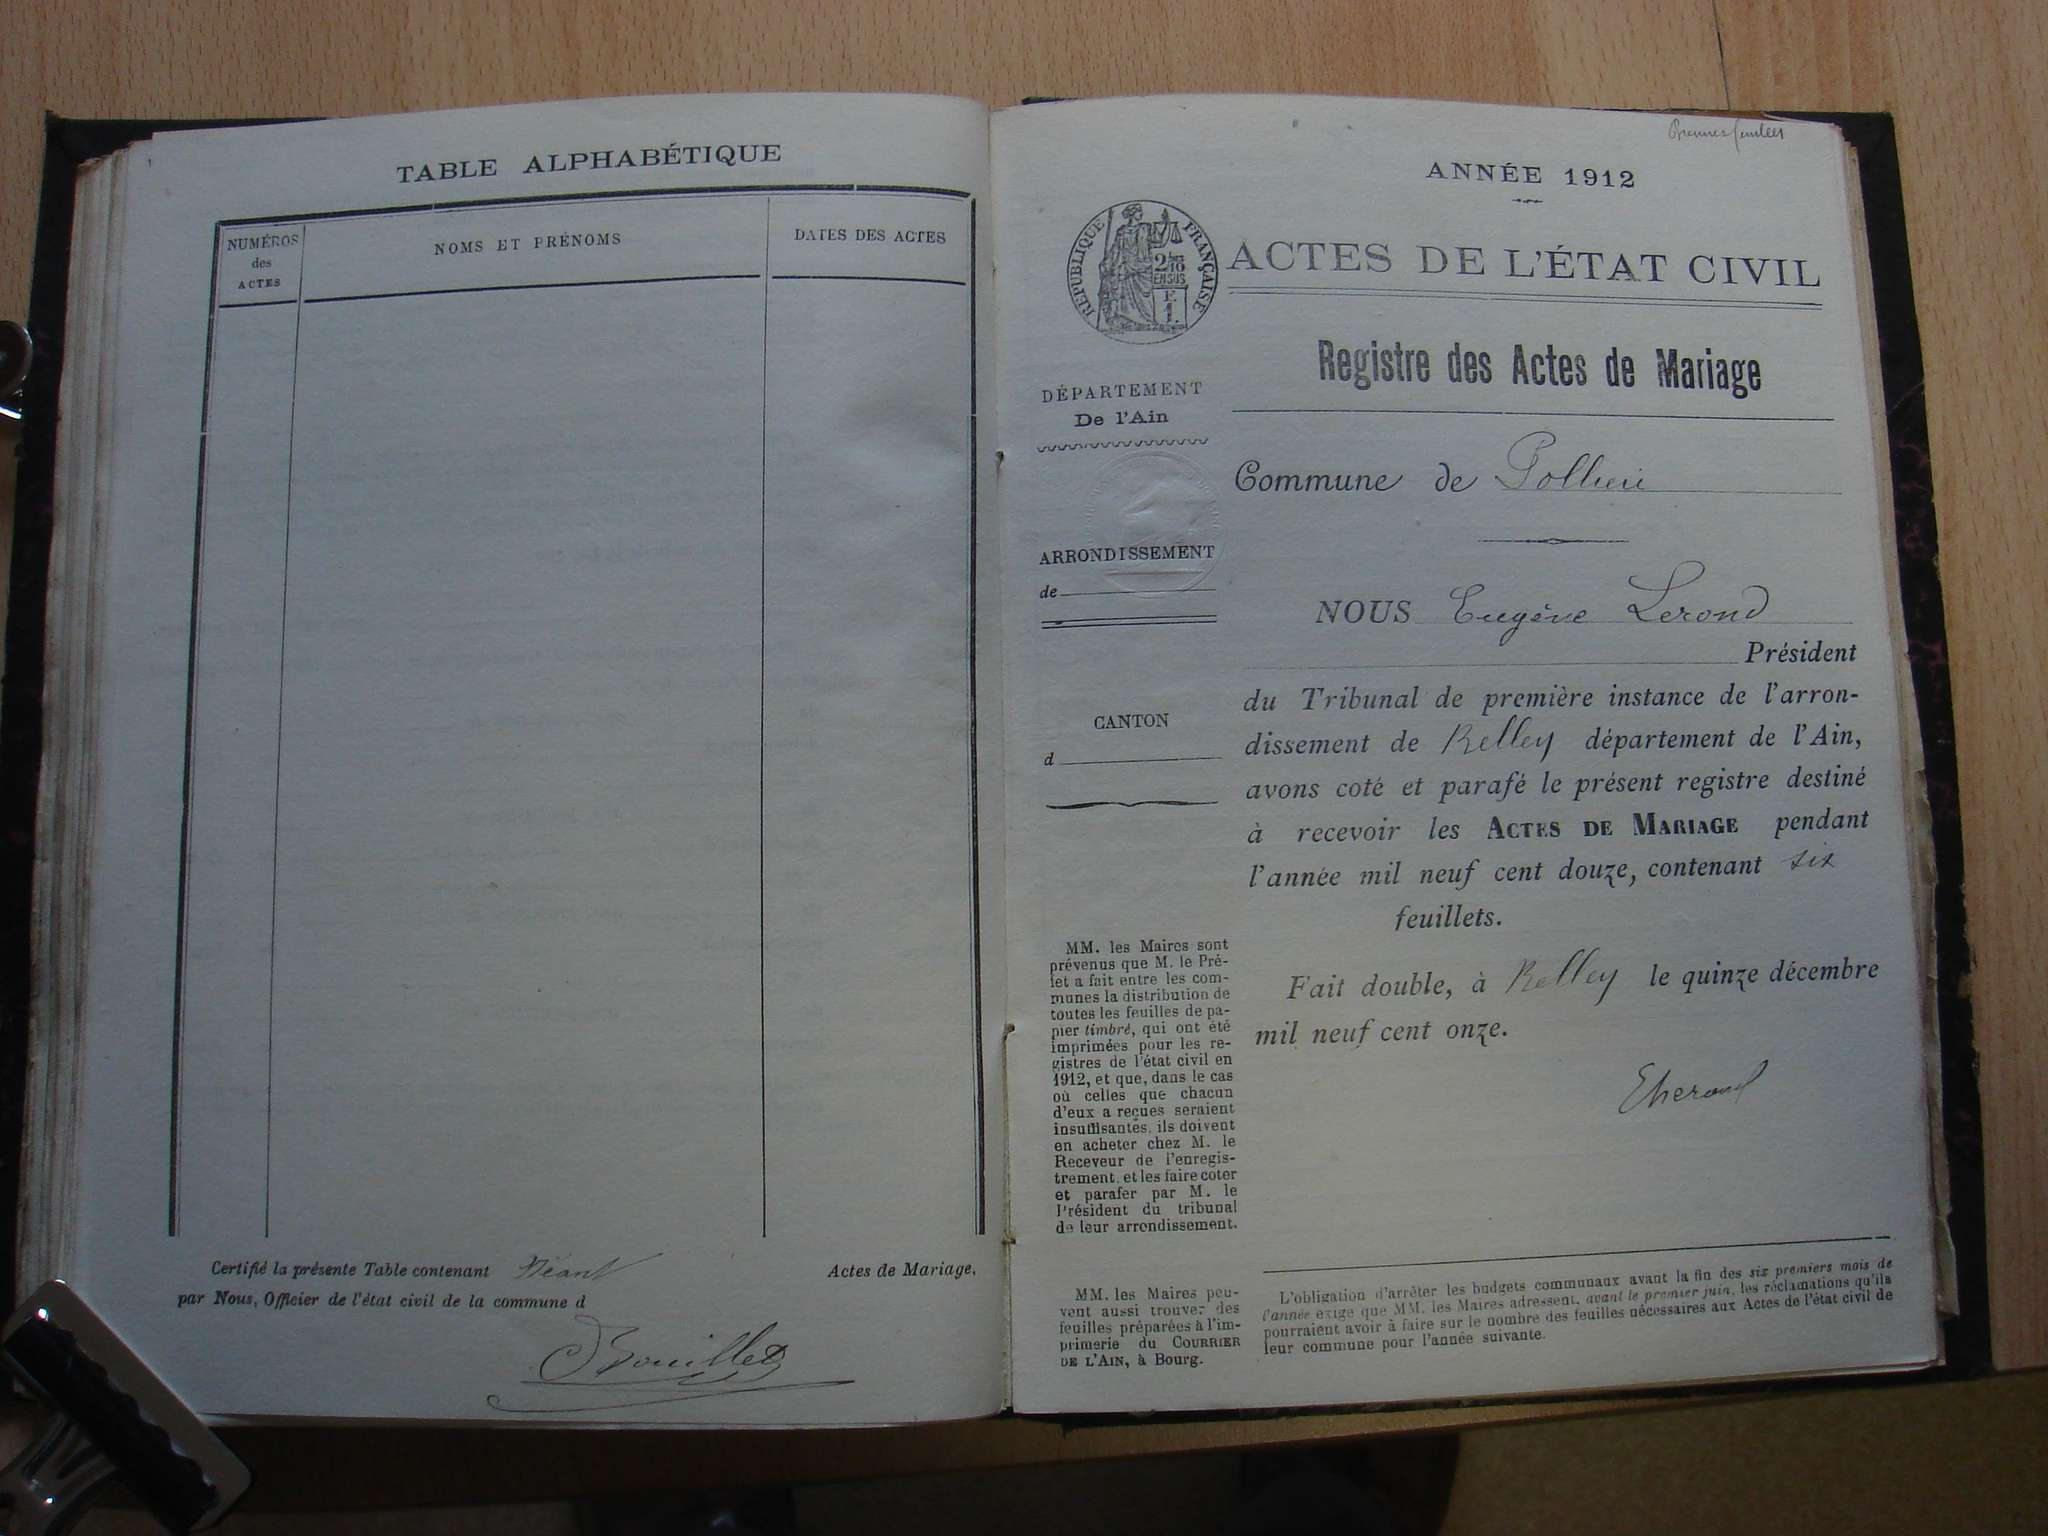 TABLE ALPHABÉTIQUE
NUMÉROS
des
ACTES
NOMS ET PRÉNOMS
DATES DES ACTES
Certifié la présente Table contenant Néant Actes de Mariage,
par Nous, Officier de l'état civil de la commune d
Bouillet
ANNÉE 1912
RÉPUBLIQUE FRANÇAISE
ACTES DE L'ÉTAT CIVIL
Registre des Actes de Mariage
DÉPARTEMENT
De l'Ain
Commune de Pollieu
ARRONDISSEMENT
de
CANTON
d
NOUS Eugène Lerond
Président
du Tribunal de première instance de l'arron-
dissement de Belley département de l'Ain,
avons coté et parafé le présent registre destiné
à recevoir les ACTES DE MARIAGE pendant
l'année mil neuf cent douze, contenant six
feuillets.
Fait double, à Belley le quinze décembre
mil neuf cent onze.
MM. les Maires sont
prévenus que M. le Pré-
fet a fait entre les com-
munes la distribution de
toutes les feuilles de pa-
pier timbré, qui ont été
imprimées pour les re-
gistres de l'état civil en
1912, et que, dans le cas
où celles que chacun
d'eux a reçues seraient
insuffisantes, ils doivent
en acheter chez M. le
Receveur de l'enregis-
trement, et les faire coter
et parafer par M. le
Président du tribunal
de leur arrondissement.
MM. les Maires peu-
vent aussi trouver des
feuilles préparées à l'im-
primerie du COURRIER
DE L'AIN, à Bourg.
L'obligation d'arrêter les budgets communaux avant la fin des six premiers mois de
l'année exige que MM. les Maires adressent, avant le premier juin, les réclamations qu'ils
pourraient avoir à faire sur le nombre des feuilles nécessaires aux Actes de l'état civil de
leur commune pour l'année suivante.